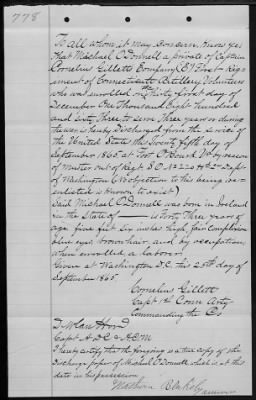 778
To all whom it may concern, know yee
that Michael O'Donnell a private of Captain
Cornelius Gillett Company (C) First Regi-
ment of Connecticut Artillery Volunteers
who was enrolled on the Thirty first day of
December One Thousand Eight Hundred
and Sixty Three to serve Three years or during
the war is hereby Discharged from the service of
the United States this Twenty fifth day of
September 1865 at Fort O'Rourk Va by reason
of Muster out of Regt S.O. No 220 Hd Qrs Dept
of Washington (No objection to his being re-
enlisted is known to exist)
Said Michael O'Donnell was born in Ireland
in the State of ——— is Forty Three years of
age five feet Six inches high Fair Complexion
blue eyes brown hair and by occupation,
when enrolled a laborer
Given at Washington D.C. this 25th day of
September 1865
Cornelius Gillett
Capt 1st Conn Arty
Commanding the Co
Capt A.D.C. & A.C.M.
I hereby certify that the foregoing is a true copy of the
Discharge paper of Michael O'Donnell which is at this
date in his possession